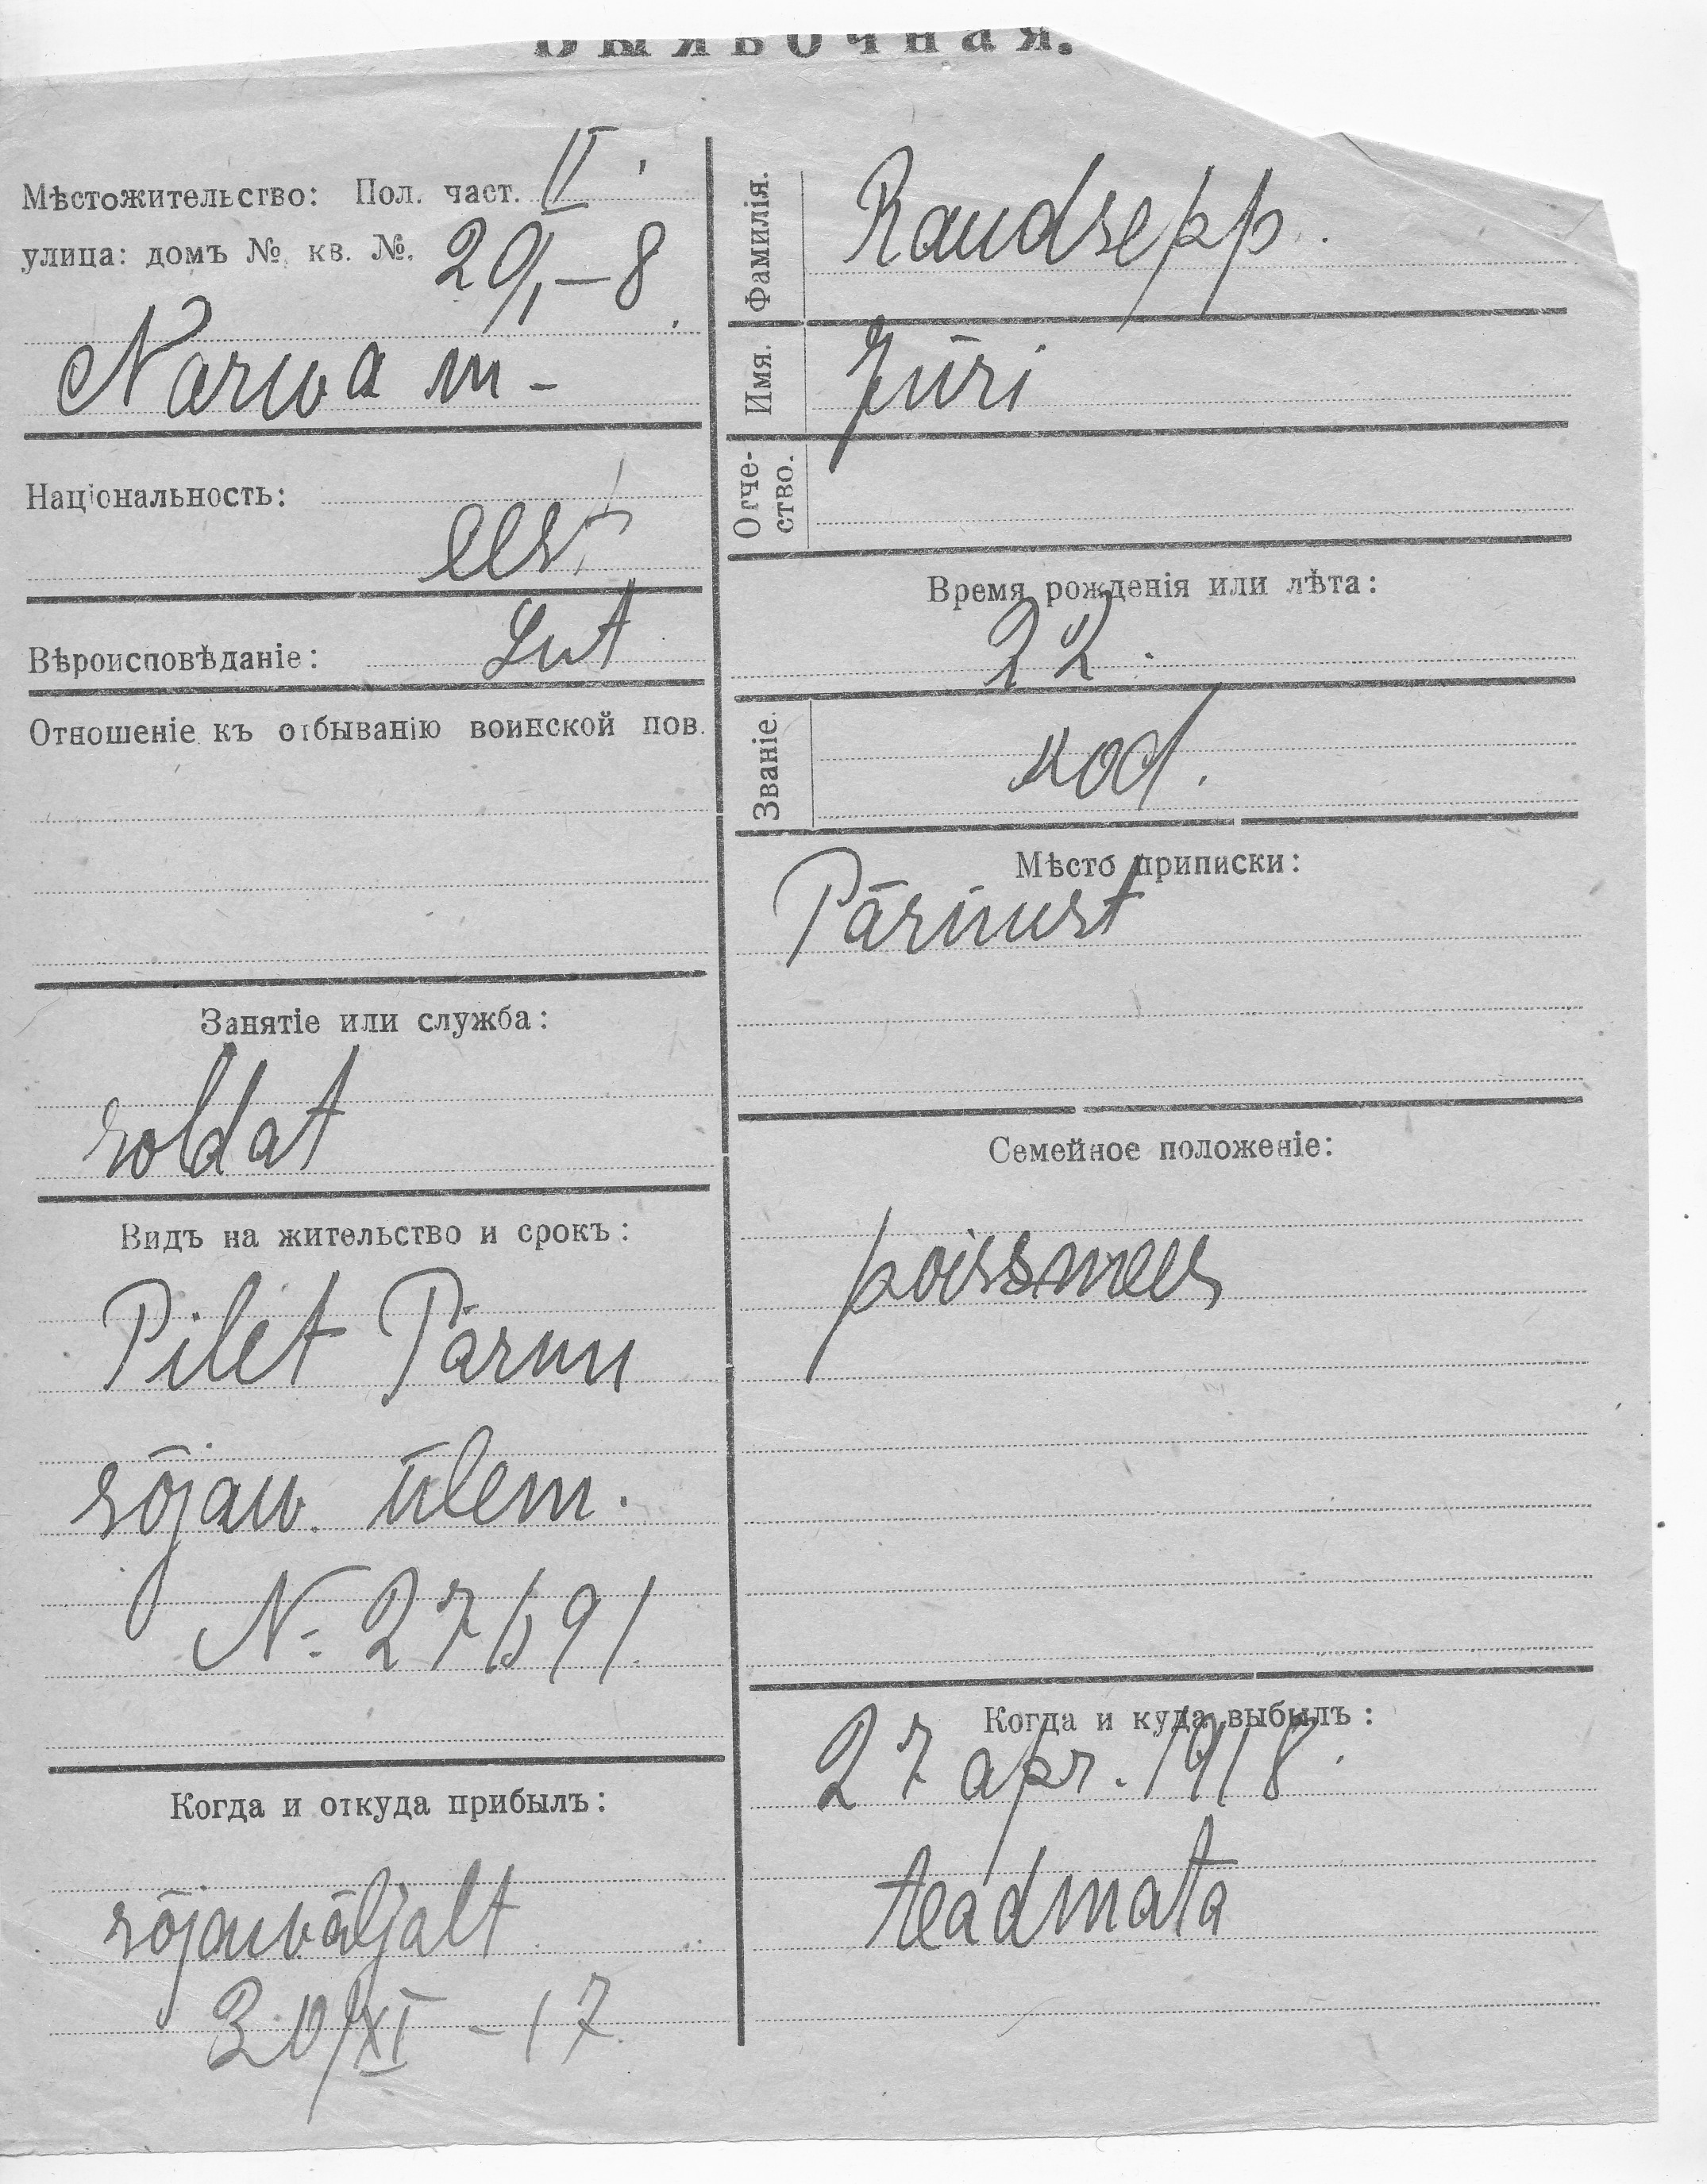 Выявочная.
Мѣстожительство: Пол. част. II.
улица: домъ № кв. №. 29,–8.
Narwa m–
Національность:
eest
Вѣроисповѣданіе: Lut
Отношеніе къ отбыванію воинской пов.
Занятіе или служба:
soldat
Видъ на жительство и срокъ:
Pilet Pärnu
sõjaw. ülem.
Когда и откуда прибылъ:
sõjawäljalt
30/XI –17.
Фамилія. Raudsepp.
Имя. Jüri
Отче-
ство.
Время рожденія или лѣта:
22.
Званіе.
kod.
Мѣсто приписки:
Pärnust
Семейное положеніе:
poissmees
Когда и куда выбылъ:
27 apr. 1918.
teadmata